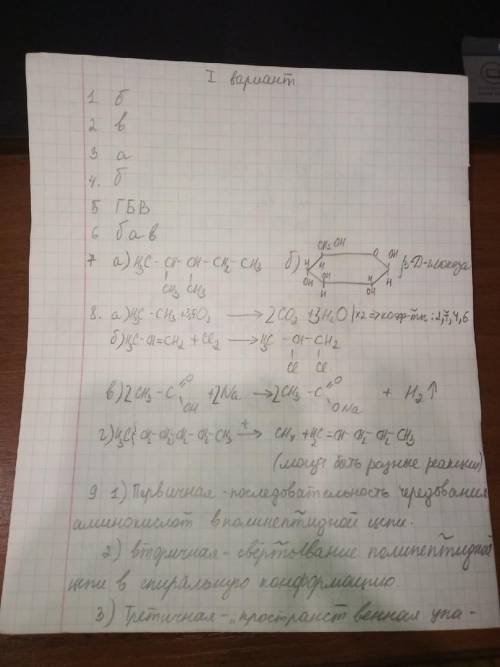 I вариант
1 б
2 в
3 а
4. б
5 ГБВ
6 б а в
7 а) H₃C – CH – CH – CH₂ – CH₃ б) CH₂OH O OH H H OH H OH H β-D-глюкоза
CH₃ CH₃
8. а) H₃C – CH₃ + 3,5O₂ → 2CO₂ + 3H₂O | x2 => коэф-ты: 2,7,4,6
б) H₃C – CH = CH₂ + Cl₂ → H₃C – CH – CH₂
Cl Cl
в) 2CH₃ – C O OH + 2Na → 2CH₃ – C O ONa + H₂↑
г) H₃C – CH₂ – CH₂ – CH₂ – CH₂ – CH₃ → CH₄ + H₂C = CH – CH₂ – CH₂ – CH₃
(могут быть разные реакции)
9 1) Первичная - последовательность чередования
аминокислот в полипептидной цепи.
2) вторичная - свёртывание полипептидной
цепи в спиральную конформацию.
3) Третичная - пространственная упа-